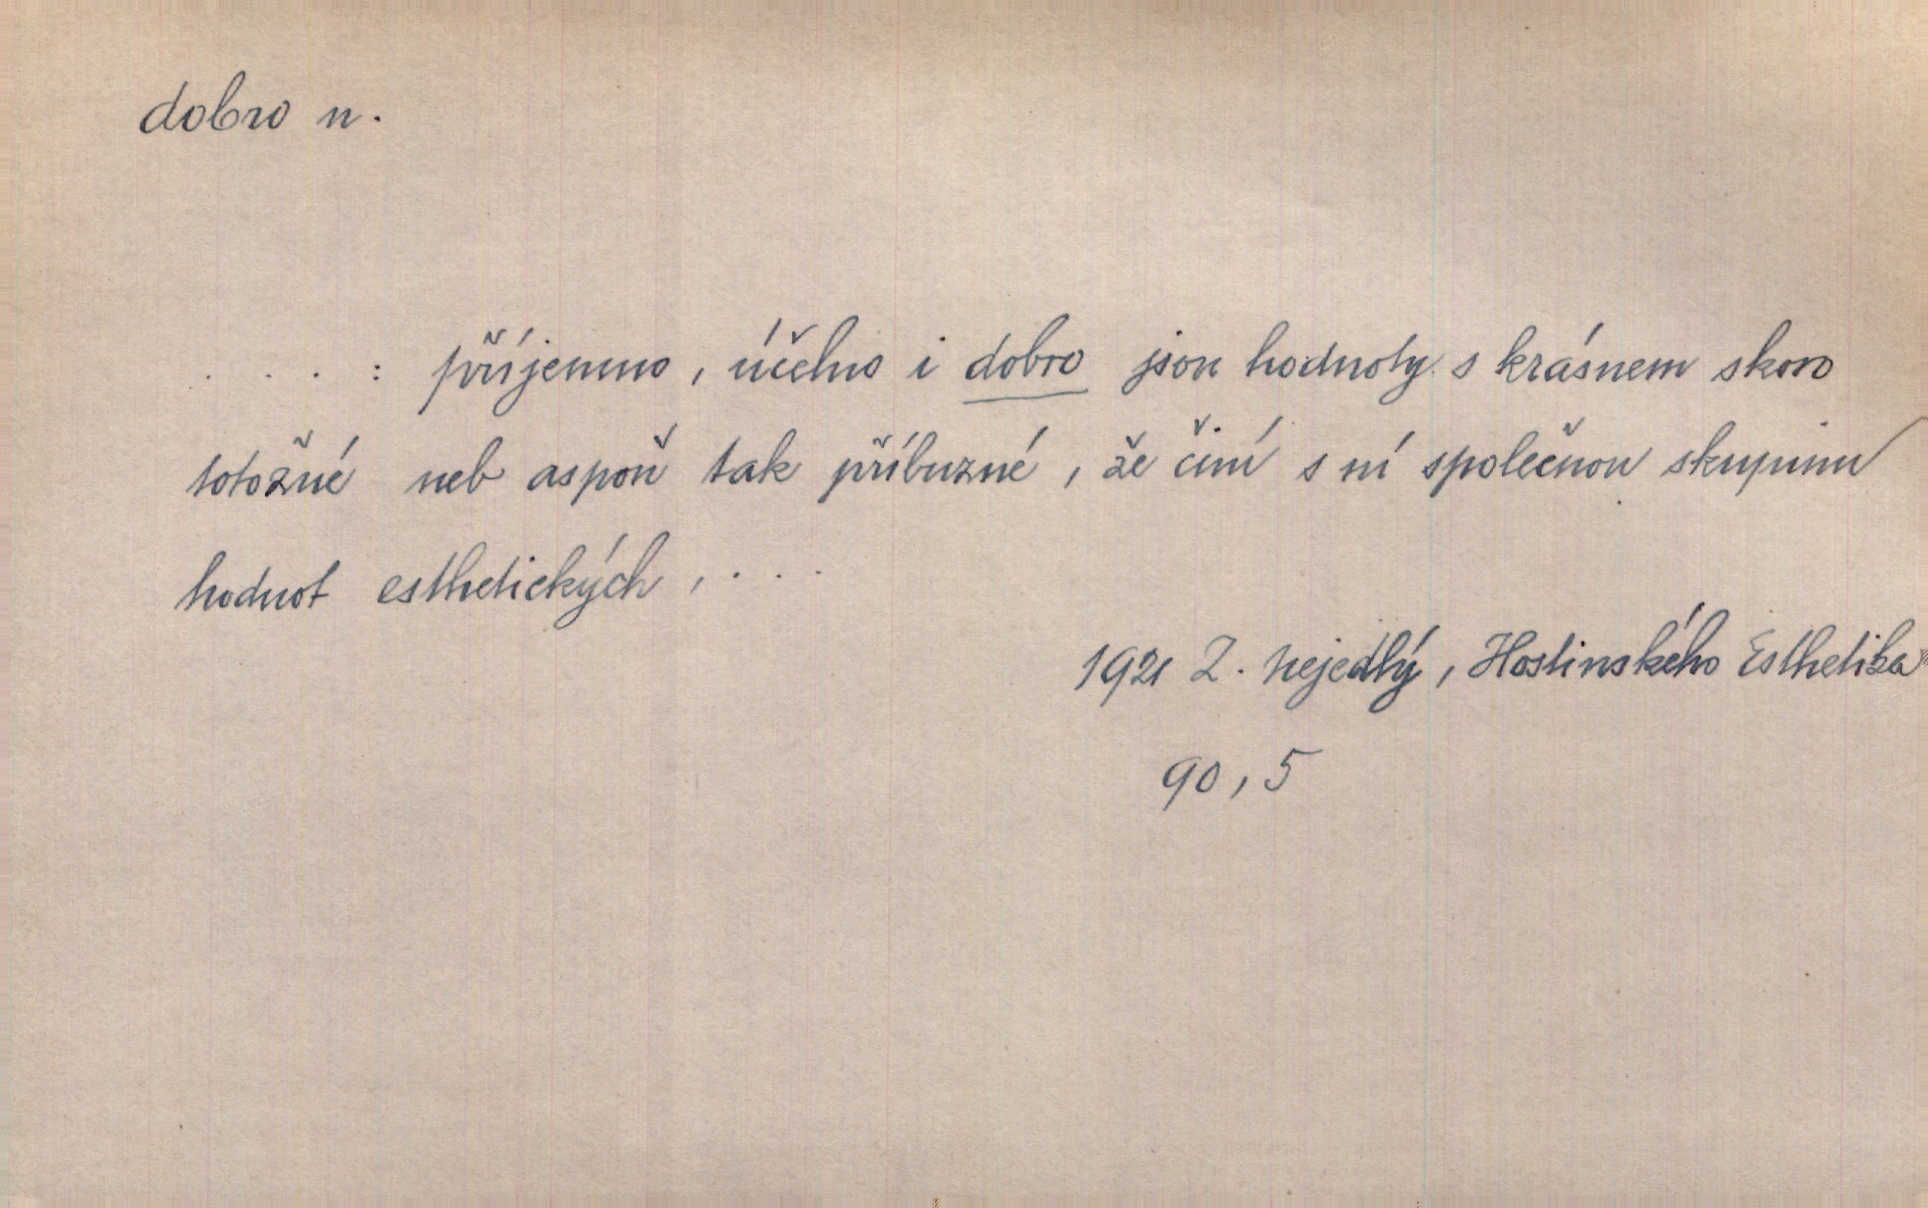 dobro n.
. . . . : příjemno, účelno i dobro jsou hodnoty s krásnem skoro
totožné neb aspoň tak příbuzné, že činí s ní společnou skupinu
hodnot esthetických, . . .
1921 Z. Nejedlý, Hostinského Esthetika
90, 5